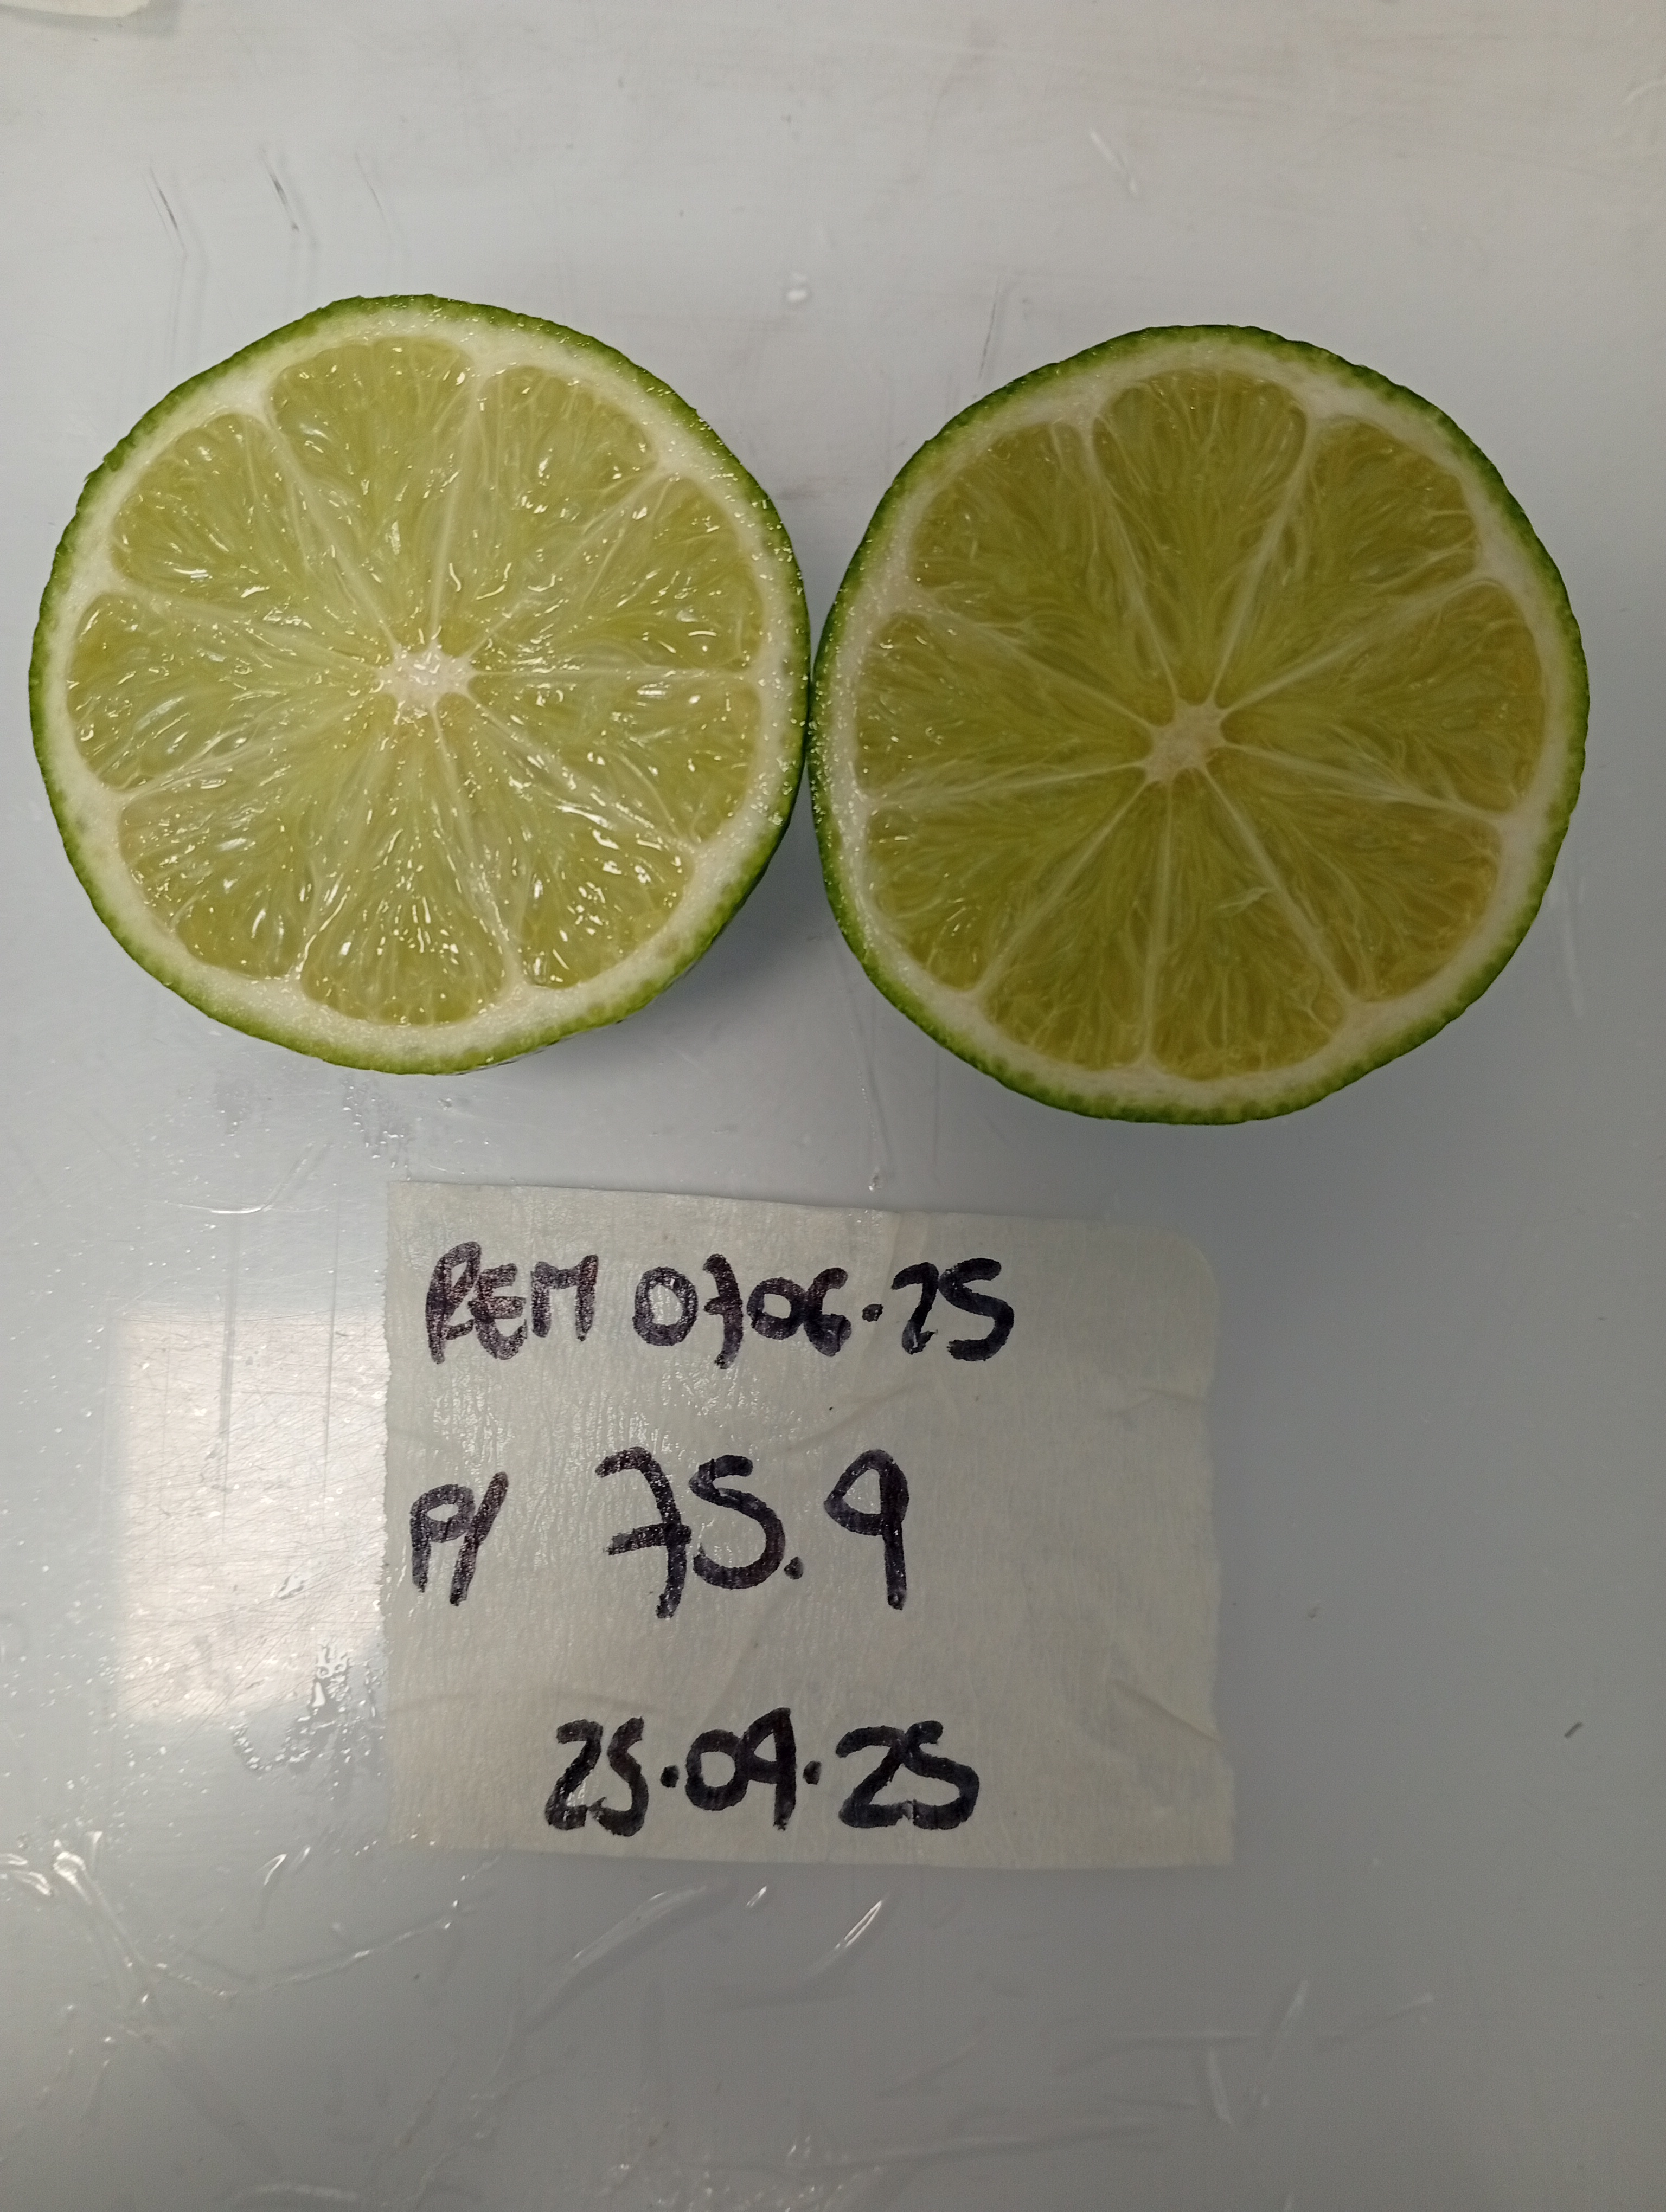 REM 0706.25
P/ 75.9
25.09.25